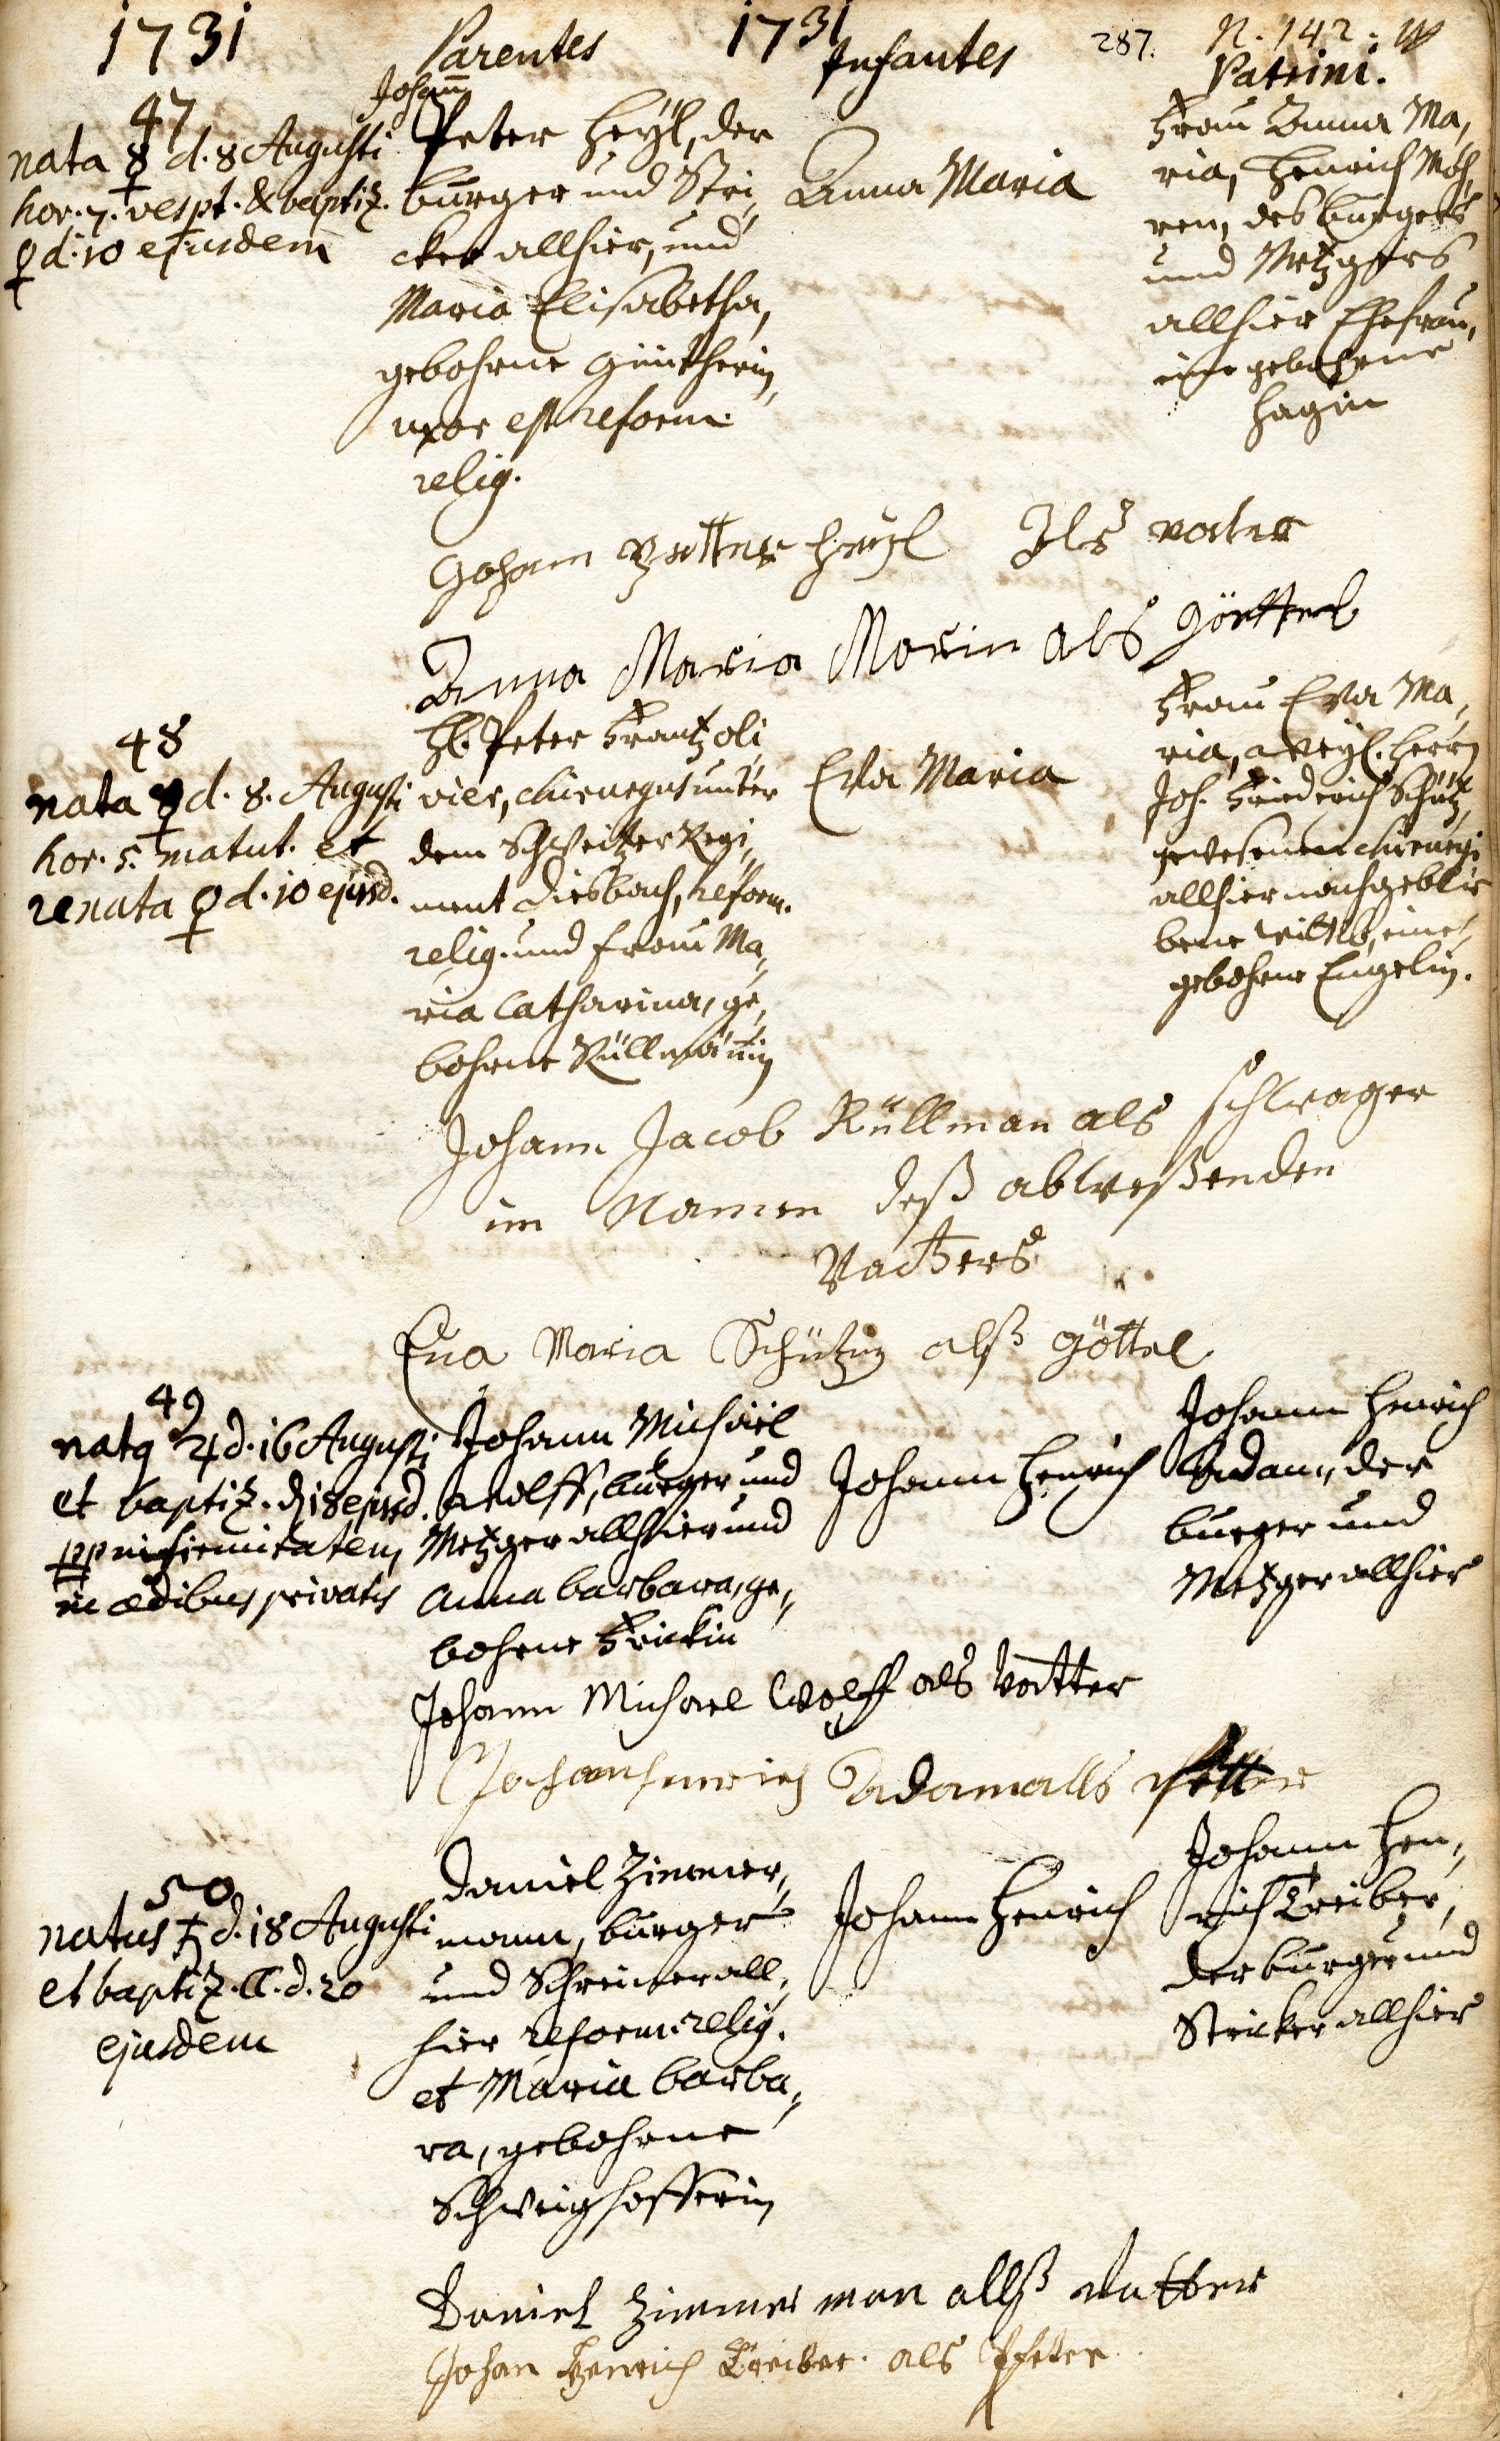 1731
Parentes
1731
Infantes
287.
N. 142.
Patrini.
47
nata ☿ d. 8 Augusti
hor. 7. vespt. & baptiz.
♀ d. 10 ejusdem
Johann
Peter Heÿl, der
burger und Stri„
cker allhier, und
Maria Elisabetha,
gebohrne Güntherin,
uxor est reform.
relig.
Anna Maria
Frau Anna Ma„
ria, Henrich Moh„
ren, des burgers
und Metzgers
allhier Ehefrau,
eine gebohrne
Hagin
Johann Petter Heyl Als vater
Anna Maria Morin als göttel
48
nata ☿ d. 8. Augusti
hor. 5. matut. et
renata ♀ d. 10 ejusd.
H. Peter Frantz oli„
vier, chirurgus unter
dem Schweitzer Regi„
ment Diesbach, reform.
relig. und Frau Ma„
ria Catharina, ge„
bohrne Rüllmännin
Eva Maria
Frau Eva Ma„
ria, weyl. Herrn
Joh. Friederich Schütz,
gewesenen chirurgi
allhier nachgeblie
bene Wittib, eine
gebohrne Engelin.
Johann Jacob Rüllman als schwager
im Namen deß abweßenden
Vatters
Eva Maria Schützin alß göttel
49
natq ♃ d. 16 Augusti
et baptiz. ♄ 18 ejusd.
pp infirmitatem
in ædibus privatis
Johann Michäel
Wolff, burger und
Metzger allhier und
Anna barbara, ge„
bohrne Frickin
Johann Henrich
Johann Henrich
Adam, der
burger und
Metzger allhier
Johann Michael Wolff als Vatter
Johan henrich Adam alls Petter
50
natus ♄ d. 18 Augusti
et baptiz. ☾. d. 20
ejusdem
Daniel Zimmer„
mann, burger
und Schreiner all„
hier reform. relig.
et Maria barba„
ra, gebohrne
Schweighofferin
Johann Henrich
Johann Hen„
rich Treiber,
der burger und
Stricker allhier
Daniel Zimmer man allß vatter
Johan Henrich Treiber als Pfetter